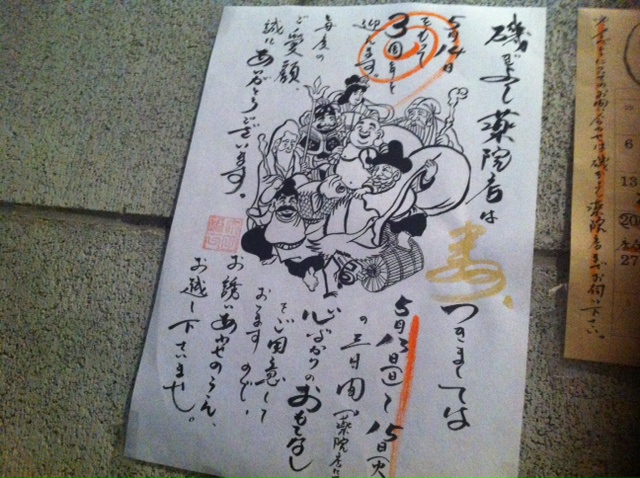 磯ぎよし薬院店は
5月14日
をもって
3周年と
迎えます。
毎度の
ご愛顧、
誠に
ありがとうございます。
寿
つきましては
5月13日(日)〜15日(火)
の三日間(薬院店に
心ばかりのおもてなし
をご用意して
おります ので、
お誘いあわせのうえ、
お越し下さいませ。
6
13
20
27